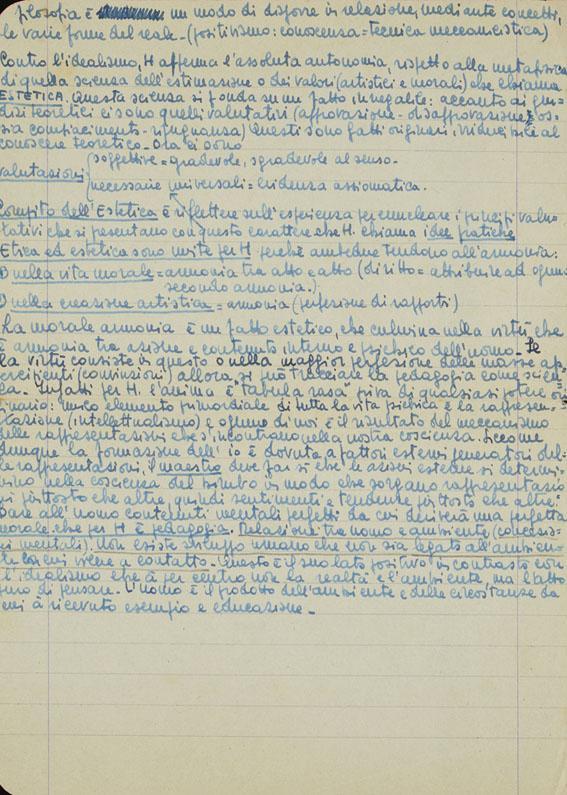 filosofia è un modo di disporre in relazione, mediante concetti,
le varie forme del reale - (positivismo: conoscenza = tecnica meccanicistica)
Contro l'idealismo, H afferma l'assoluta autonomia, rispetto alla metafisica
di quella scienza dell'estimazione o dei valori (artistici e morali) che chiama
ESTETICA. Questa scienza si fonda su un fatto innegabile: accanto ai giu-
dizi teoretici ci sono quelli valutativi (approvazione - disapprovazione, os-
sia compiacimento - ripugnanza) Questi sono fatti originari, irriducibili al
conoscere teoretico - Ora ci sono
valutazioni { soggettive = gradevole, sgradevole al senso -
necessarie universali = evidenza assiomatica.
Compito dell'Estetica è riflettere sull'esperienza per enucleare i principi valu-
tativi che si presentano con questo carattere che H. chiama idee pratiche
Etica ed estetica sono unite per H perchè ambedue tendono all'armonia:
1) nella vita morale = armonia tra atto e atto (diritto = attribuire ad ognuno
secondo armonia.)
2) nella creazione artistica = armonia (perfezione di rapporti)
La morale armonia è un fatto estetico, che culmina nella virtù che
è armonia tra azione e contenuto interno e psichico dell'uomo - Se
la virtù consiste in questo o nella maggior perfezione delle masse ap-
percipienti (convinzioni) allora, si può tracciare la pedagogia come scien-
za - Infatti per H. l'anima è "tabula rasa" priva di qualsiasi potere ori-
ginario: unico elemento primordiale di tutta la vita psichica è la rappresen-
tazione (intellettualismo) e ognuno di noi è il risultato del meccanismo
delle rappresentazioni che s'incontrano nella nostra coscienza. Siccome
dunque la formazione dell'io è dovuta a fattori esterni generatori del-
le rappresentazioni, il maestro deve far sì che le azioni esterne si determi-
nino nella coscienza del bimbo in modo che sorgano rappresentazio
ni piuttosto che altre, quindi sentimenti e tendenze piuttosto che altre.
Dare all'uomo contenuti mentali perfetti da cui deriverà una perfetta
morale, che per H è pedagogia. Relazione tra uomo e ambiente (concessio-
ni mentali). Non esiste sviluppo umano che non sia legato all'ambien-
te con cui viene a contatto. Questo è il suo lato positivo in contrasto con
l'idealismo che à per centro non la realtà e l'ambiente, ma l'atto
puro di pensare. L'uomo è il prodotto dell'ambiente e delle circostanze da
cui à ricevuto esempio e educazione -